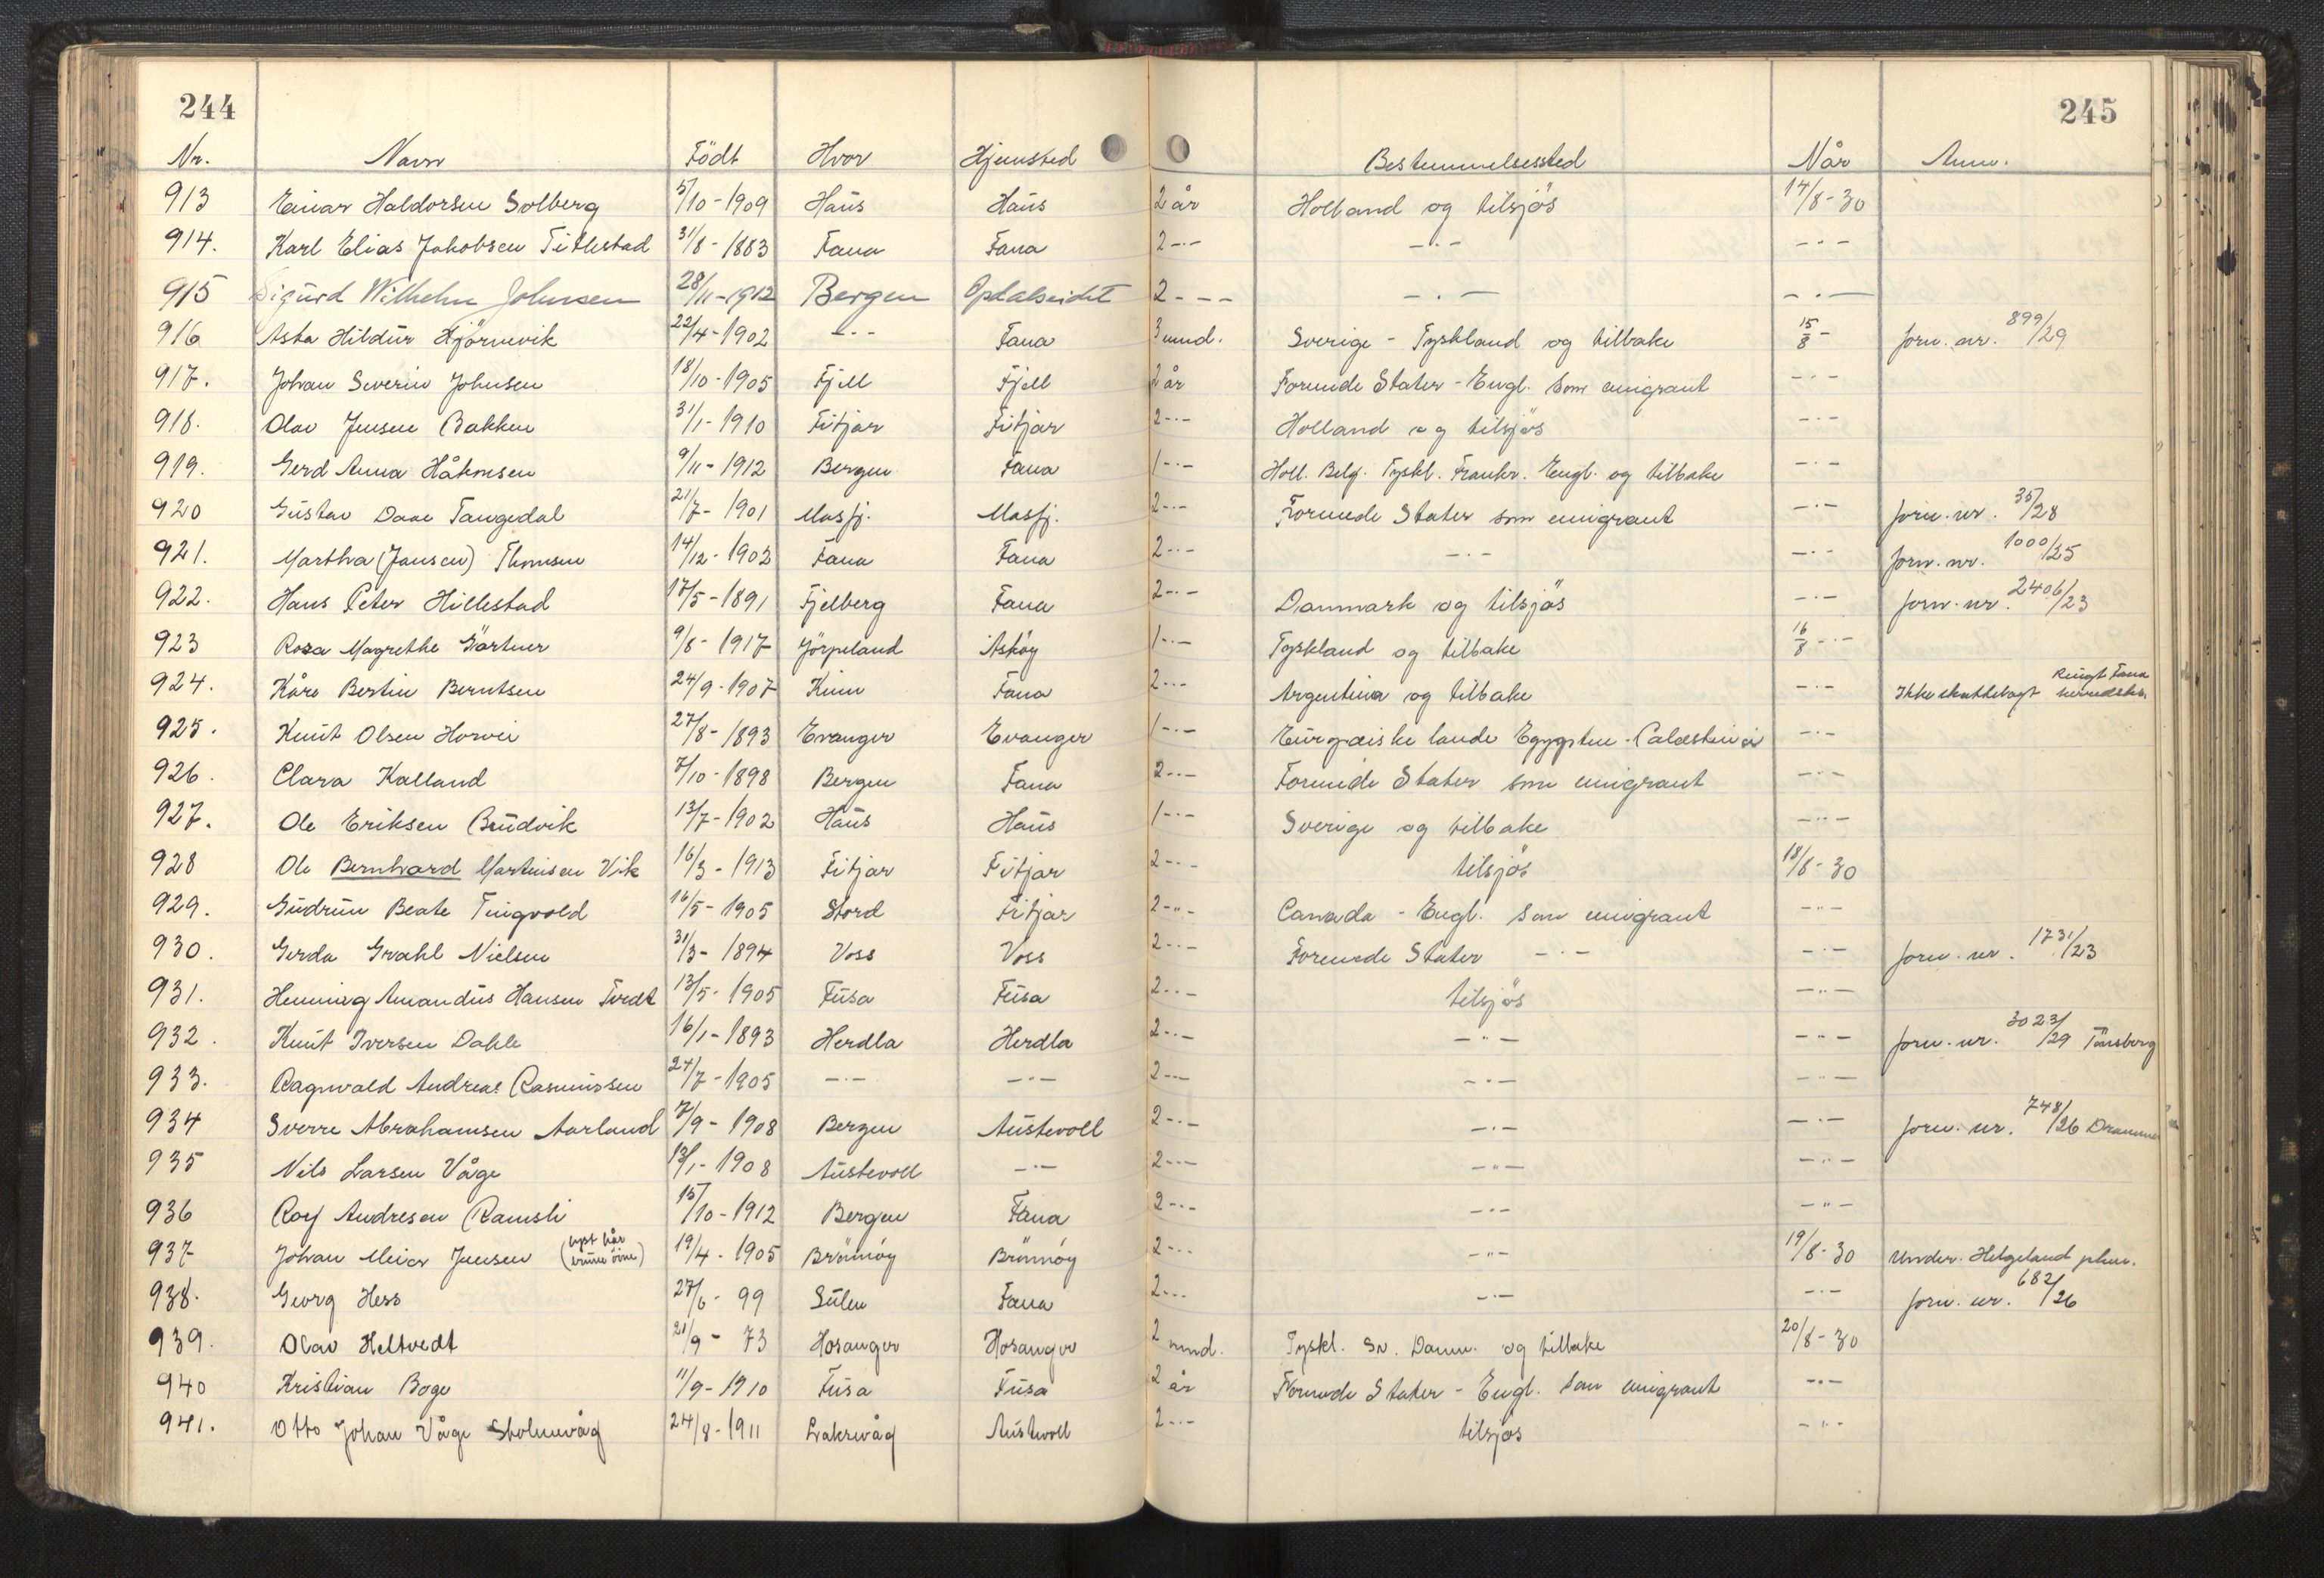 244
245
Nr. Navn Födt Hvor Hjemsted Bestemmelsessted Når Anm.
913 Einar Haldorsen Solberg 5/10-1909 Haus Haus 2 år Holland og tilsjös 14/8-30
914. Karl Elias Jakobsen Titlestad 31/8-1883 Fana Fana 2 -·- -·- -·-
915 Sigurd Wilhelm Johnsen 28/11-1912 Bergen Opdalseidet 2 - - - -·- -·-
916 Asta Hildur Hjörnevik 22/4-1902 -·- Fana 3 mnd. Sverige - Tyskland og tilbake 15/8 - forn. nr. 899/29
917. Johan Severin Johnsen 18/10-1905 Fjell Fjell 2 år Forende Stater - Engl. som emigrant -·-
918. Olav Jensen Bakken 31/1-1910 Fitjar Fitjar 2 -·- Holland og tilsjös -·-
919. Gerd Anna Håkonsen 9/11-1912 Bergen Fana 1 -·- Holl. Belg. Tyskl. Frankr. Engl. og tilbake -·-
920 Gustav Daae Tangedal 21/7-1901 Masfj. Masfj. 2 -·- Forende Stater som emigrant -·- forn. nr. 35/28
921. Martha (Jansen) Thomsen 14/12-1902 Fana Fana 2 -·- -·- -·- forn. nr. 1000/25
922. Hans Peter Hillestad 17/5-1891 Fjelberg Fana 2 -·- Danmark og tilsjös -·- forn. nr. 2406/23
923 Rosa Magrethe Gärtner 9/8-1917 Jörpeland Asköy 1 -·- Tyskland og tilbake 16/8 -·-
924. Kåre Bertin Berntsen 24/9-1907 Kinn Fana 2 -·- Argentina og tilbake -·- Ikke skattelagt Ringt Fana herredsk.
925. Knut Olsen Horvei 27/8-1893 Evanger Evanger 1 -·- Europæiske lande Egypten - Palæstina -·-
926. Clara Kalland 7/10-1898 Bergen Fana 2 -·- Forende Stater som emigrant -·-
927. Ole Eriksen Bruvik 13/7-1902 Haus Haus 1 -·- Sverige og tilbake -·-
928 Ole Bernhard Martinsen Vik 16/3-1913 Fitjar Fitjar 2 -·- tilsjös 18/8-30
929. Gudrun Beate Tingvold 16/5-1905 Stord Fitjar 2 -"- Canada - Engl. som emigrant -"-
930. Gerda Grahl Nielsen 31/3-1894 Voss Voss 2 -·- Forende Stater -·- -·- forn. nr. 1731/23
931. Henning Amandus Hansen Tvedt 13/5-1905 Fusa Fusa 2 -·- tilsjös -"-
932. Knut Iversen Dahle 16/1-1893 Herdla Herdla 2 -·- -"- -"- forn. nr. 3023/29 Tönsberg
933. Ragnvald Andreas Rasmussen 24/7-1905 -·- -·- 2 -·- -"- -"-
934 Sverre Abrahamsen Aarland 7/9-1908 Bergen Austevoll 2 -·- -·- -·- forn. nr. 748/26 Drammen
935 Nils Larsen Våge 13/1-1908 Austevoll -·- 2 -·- -"- -·-
936 Roy Andresen Ramsli 15/10-1912 Bergen Fana 2 -·- -·- -"-
937 Johan Meier Jensen (lyst hår brune öine) 19/4-1905 Brönnöy Brönnöy 2 -·- -"- 19/8-30 Under. Helgeland pkm.
938. Georg Hess 27/6-99 Sulen Fana 2 -·- -·- -·- forn. nr. 682/26
939. Olav Heltvedt 21/9-73 Hosanger Hosanger 2 mnd. Tyskl. Sv. Danm. og tilbake 20/8-30
940 Kristian Boge 11/9-1910 Fusa Fusa 2 år Forende Stater - Engl. som emigrant -·-
941. Otto Johan Våge Stolmevåg 24/8-1911 Laksevåg Austevoll 2 -·- tilsjös -"-